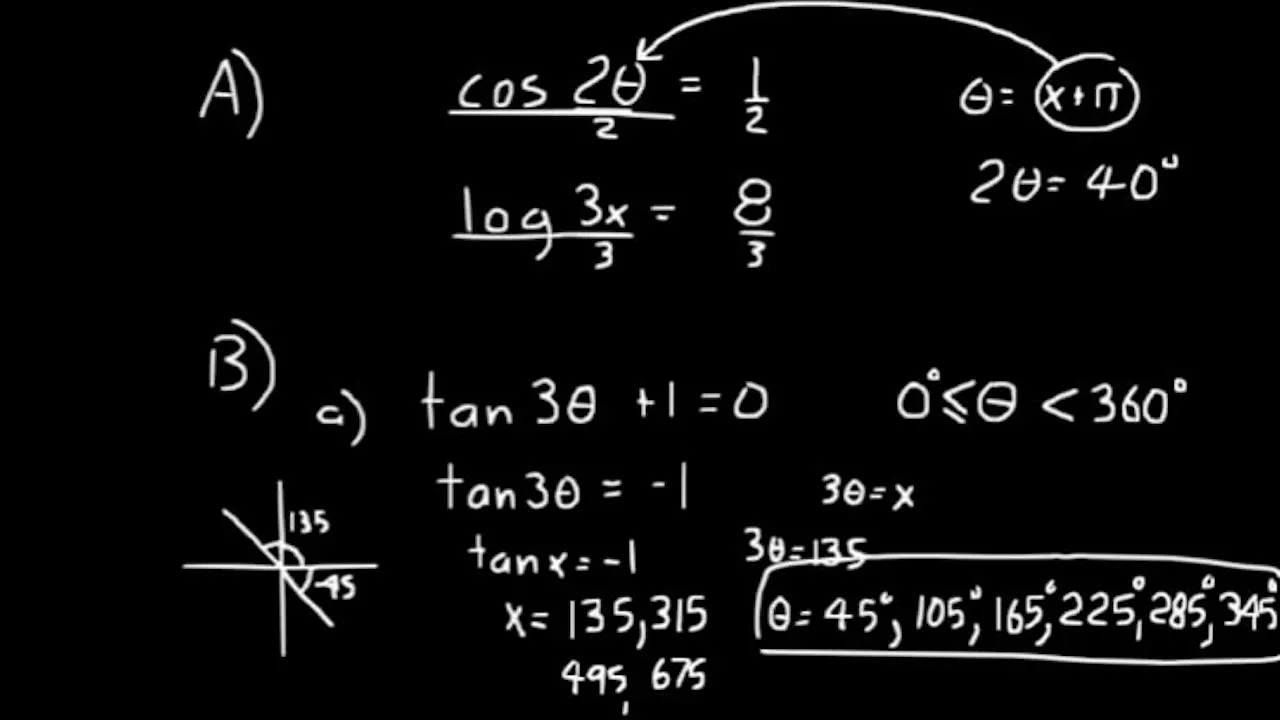 A) cos 2θ/2 = 1/2 θ = x + π
2θ = 40°
log 3x/3 = 8/3
B) a) tan 3θ + 1 = 0 0° ≤ θ < 360°
tan 3θ = -1 3θ = x
135
tan x = -1 3θ = 135
-45
x = 135, 315 θ = 45°, 105°, 165°, 225°, 285°, 345°
495, 675